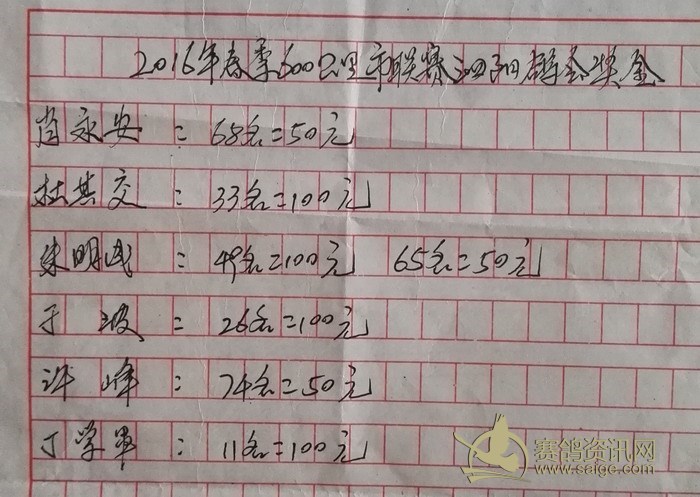 2016年春季600公里市联赛泗阳群会奖金
肖永安 : 68名=50元
杜其交 : 33名=100元
朱明成 : 49名=100元 65名=50元
于波 : 26名=100元
许峰 : 74名=50元
丁学军 : 11名=100元
赛鸽资讯网
www.saige.com